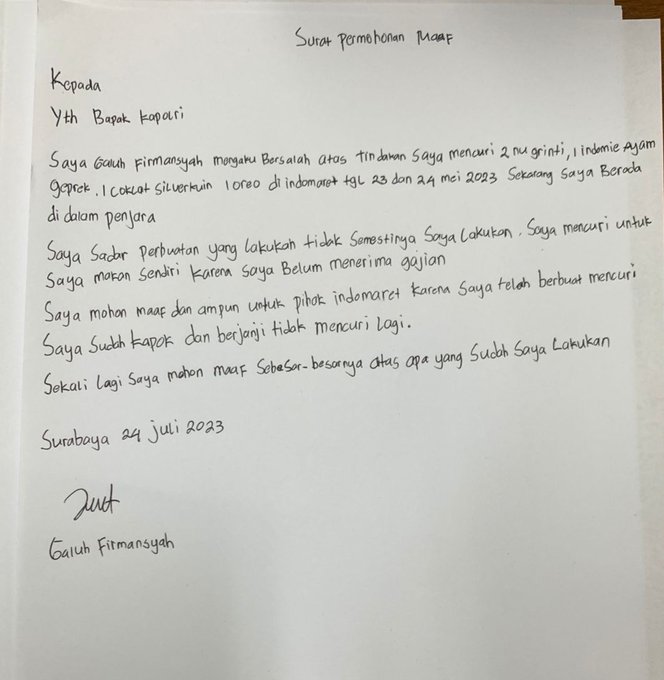 Surat Permohonan Maaf
Kepada
Yth Bapak Kapolri
Saya Galuh Firmansyah mengaku Bersalah atas tindakan Saya mencuri 2 nugrinti, 1 indomie Ayam
geprek, 1 Coklat Silverkuin 1 oreo di indomaret tgl 23 dan 24 mei 2023 Sekarang Saya Berada
di dalam penjara
Saya Sadar perbuatan yang lakukan tidak Semestinya Saya Lakukan. Saya mencuri untuk
Saya makan Sendiri Karena Saya Belum menerima gajian
Saya mohon maaf dan ampun untuk pihak indomaret karena Saya telah berbuat mencuri
Saya Sudah kapok dan berjanji tidak mencuri lagi.
Sekali lagi Saya mohon maaf Sebesar-besarnya atas apa yang Sudah Saya Lakukan
Surabaya 24 juli 2023
Galuh Firmansyah